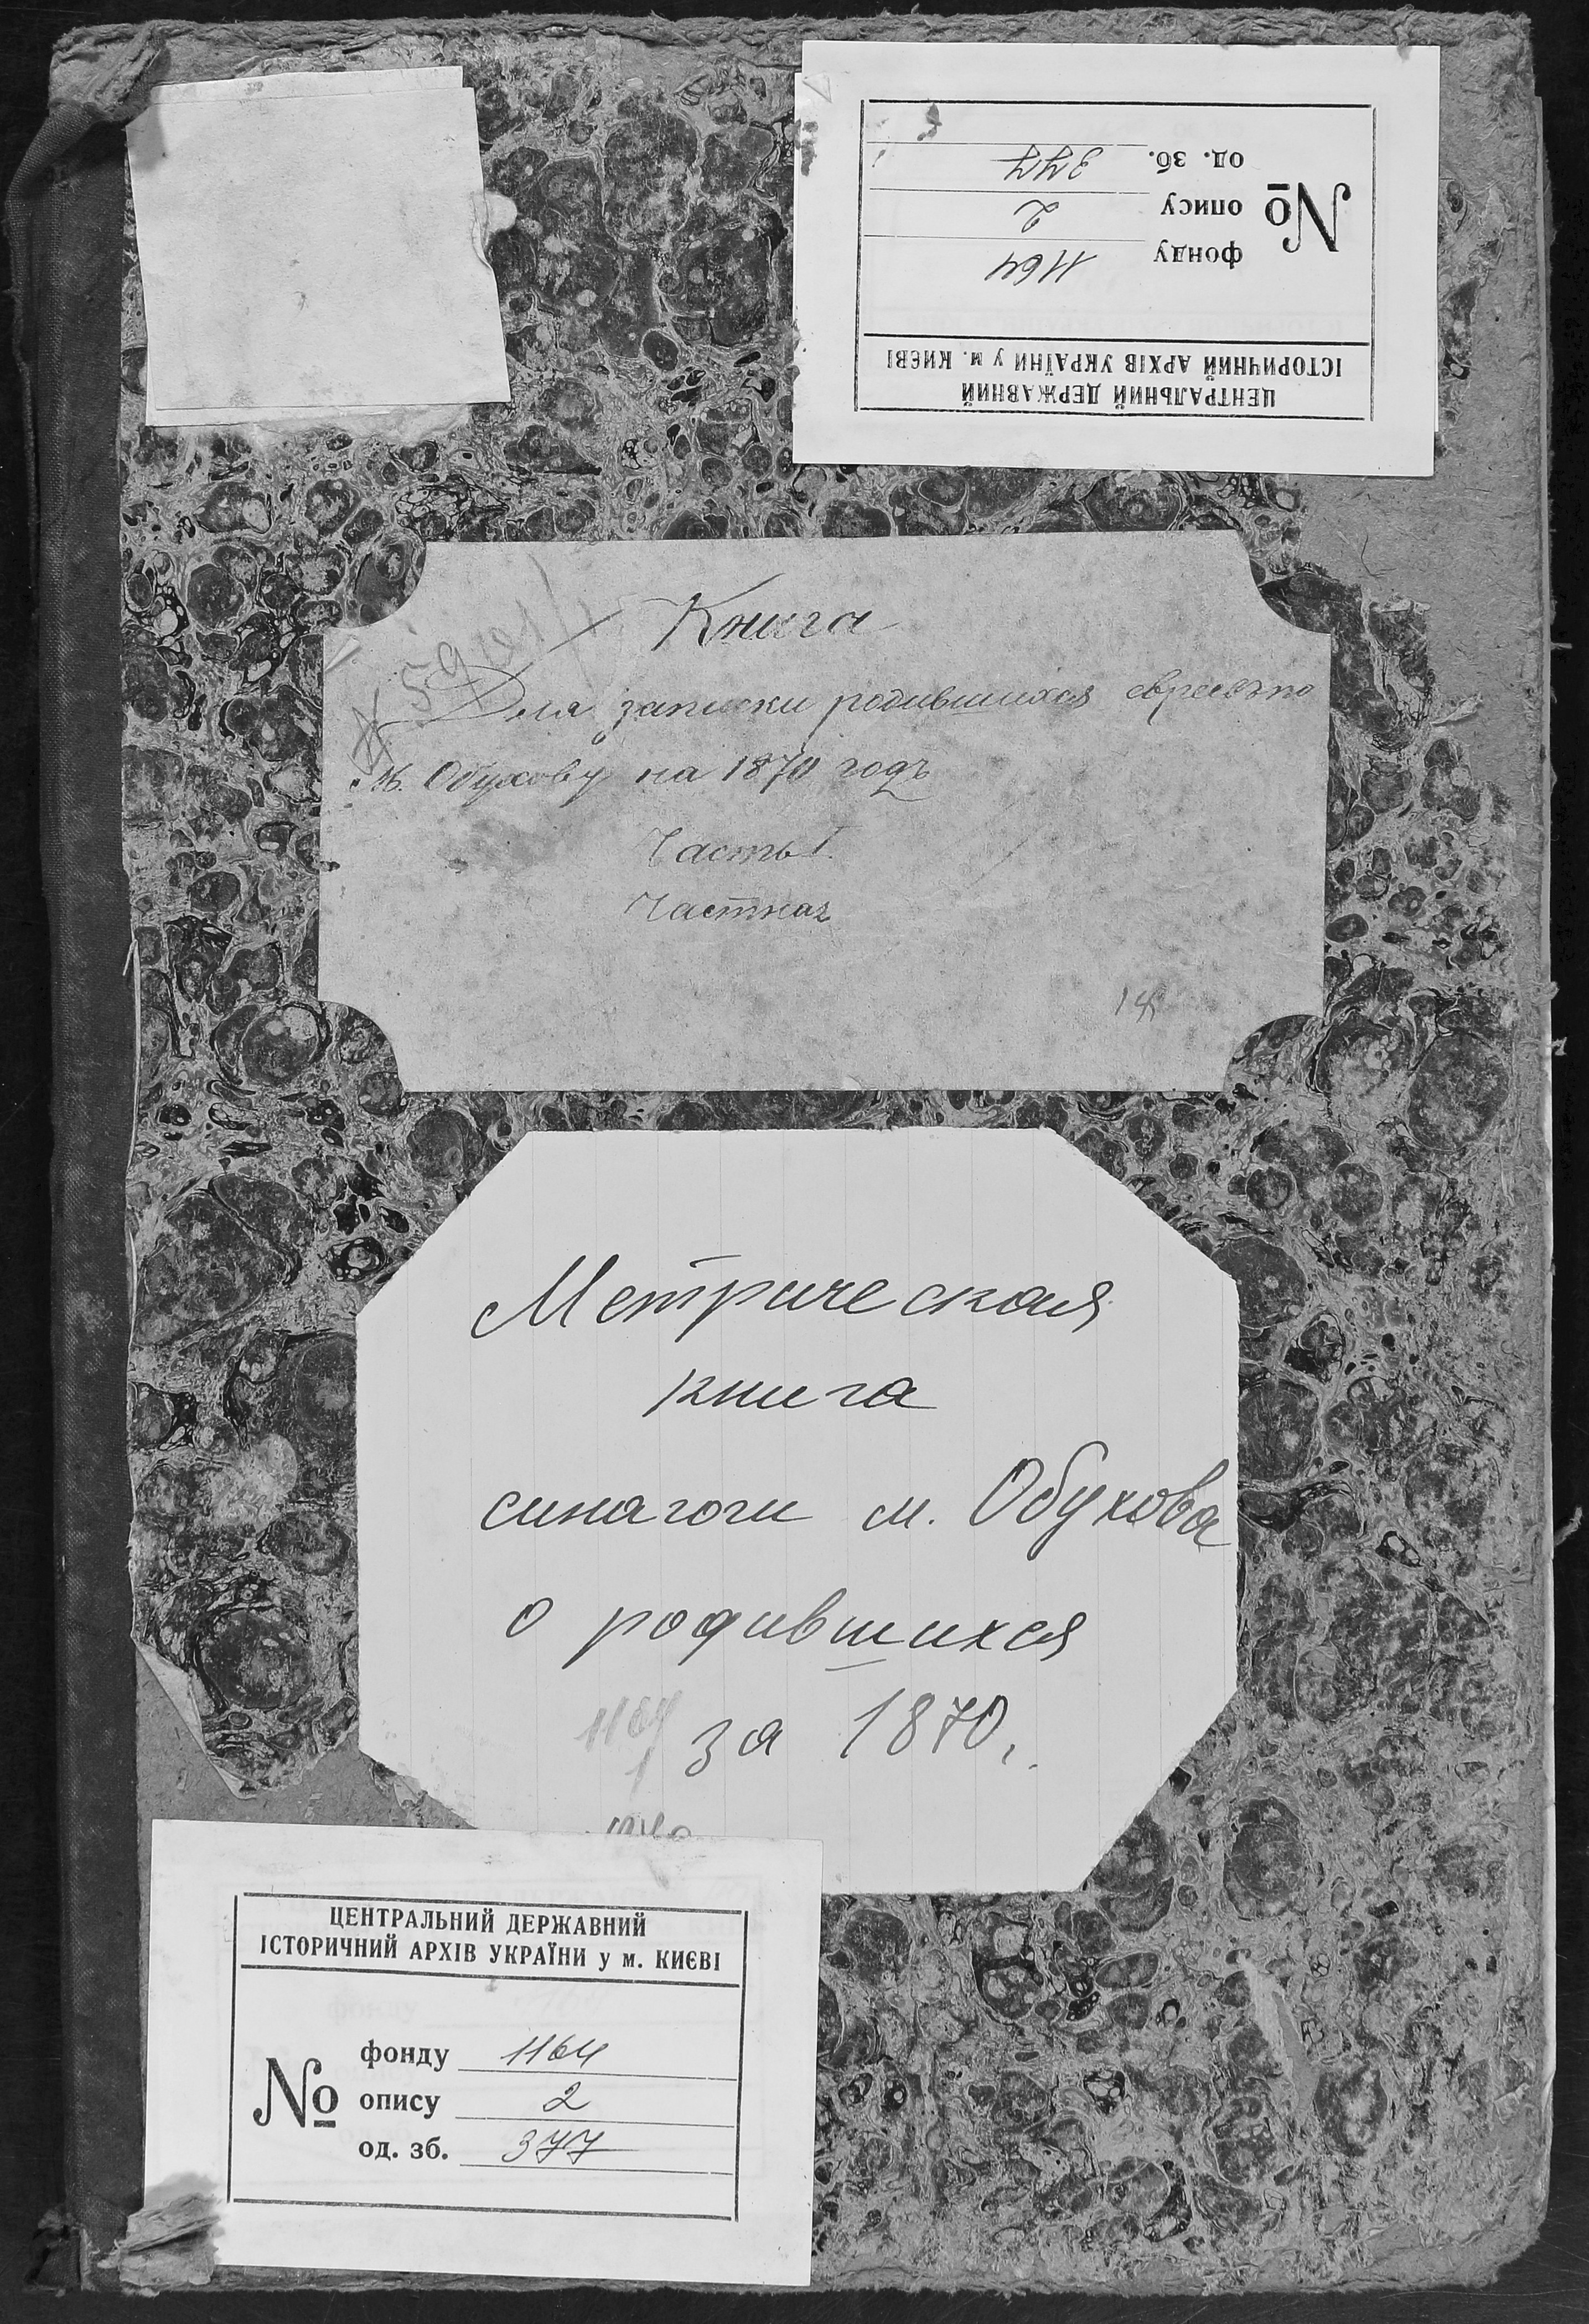 ЦЕНТРАЛЬНИЙ ДЕРЖАВНИЙ
ІСТОРИЧНИЙ АРХІВ УКРАЇНИ у м. КИЄВІ
№
фонду 1164
опису 2
од. зб. 377
Книга
Для записки родившихся евреевъ по
М. Обухову на 1870 годъ
Часть I.
59
Метрическая
книга
синагоги м. Обухова
о родившихся
за 1870,
1164
1
ЦЕНТРАЛЬНИЙ ДЕРЖАВНИЙ
ІСТОРИЧНИЙ АРХІВ УКРАЇНИ у м. КИЄВІ
№
фонду 1164
опису 2
од. зб. 377